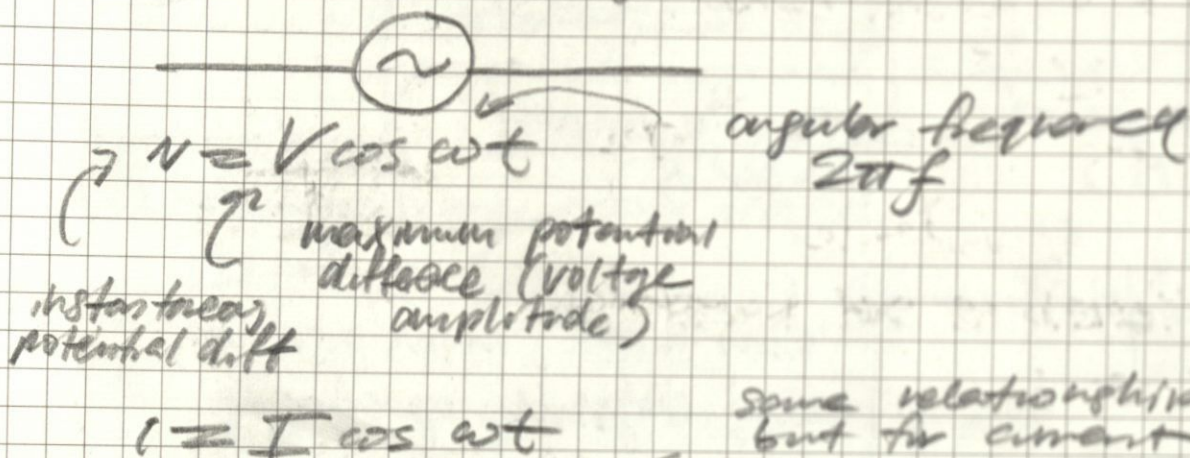 v = V cos ωt
angular frequency
2πf
maximum potential
difference (voltage
amplitude)
instantaneous
potential diff
i = I cos ωt
same relationship
but for current